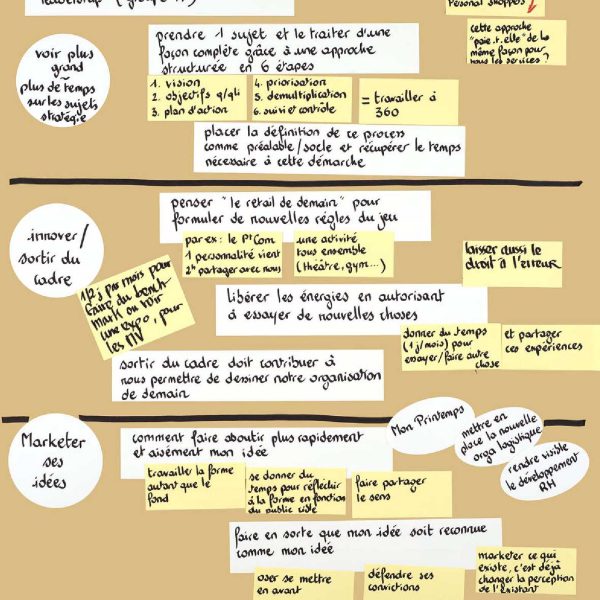 Personal shoppers
cette approche
"paie.t.elle" de la
même façon pour
tous les services ?
voir plus
grand
~
plus de temps
sur les sujets
stratégie
prendre 1 sujet et le traiter d'une
façon complète grâce à une approche
structurée en 6 étapes
1. vision
2. objectifs q/qli
3. plan d'action
4. priorisation
5. démultiplication
6. suivi et contrôle
= travailler à
360
placer la définition de ce process
comme préalable/socle et récupérer le temps
nécessaire à cette démarche
innover/
sortir du
cadre
penser "le retail de demain" pour
formuler de nouvelles régles du jeu
par ex : le Pt Com
1 personnalité vient
2h partager avec nous
une activité
tous ensemble
(théâtre, gym...)
laisser aussi le
droit à l'erreur
1/2 j par mois pour
faire du bench
mark ou voir
une expo, pour
les
libérer les énergies en autorisant
à essayer de nouvelles choses
donner du temps
(1j/mois) pour
essayer/faire autre
chose
et partager
ces expériences
sortir du cadre doit contribuer à
nous permettre de dessiner notre organisation
de demain
Marketer
ses
idées
comment faire aboutir plus rapidement
et aisément mon idée
Mon Printemps
mettre en
place la nouvelle
orga logistique
rendre visible
le développement
RH
travailler la forme
autant que le
fond
se donner du
temps pour réfléchir
à la forme en fonction
du public cible
faire partager
le sens
faire en sorte que mon idée soit reconnue
comme mon idée
oser se mettre
en avant
défendre ses
convictions
marketer ce qui
existe, c'est déjà
changer la perception
de l'existant